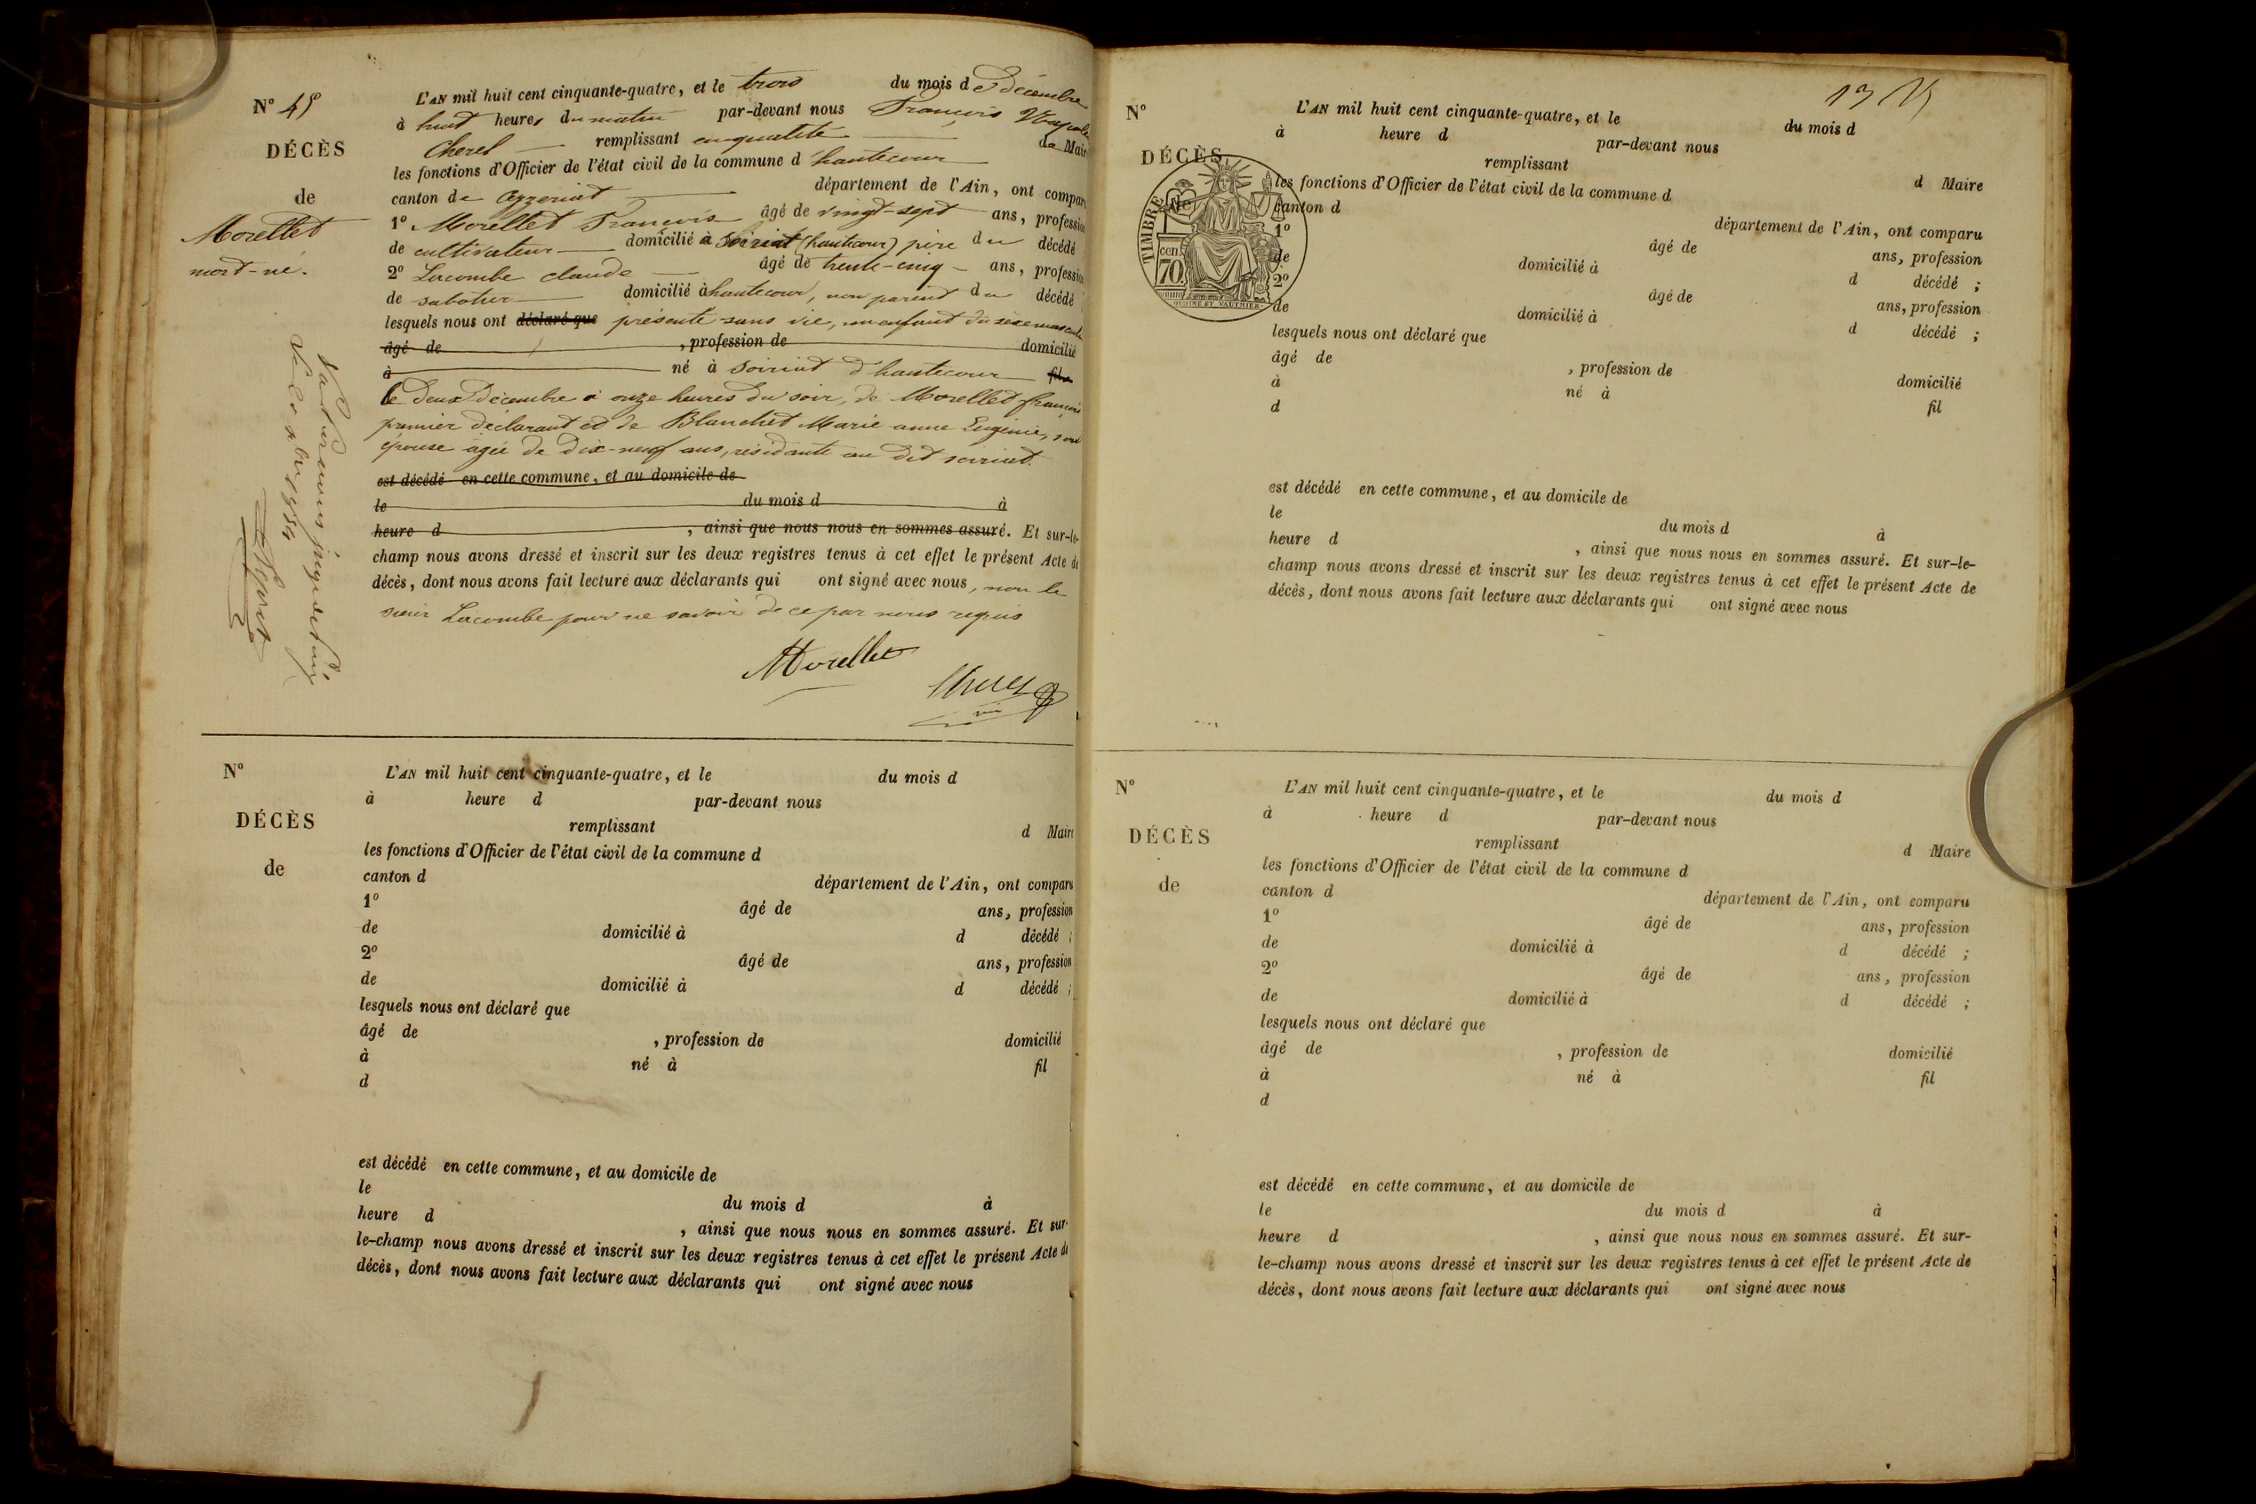 N° 45
DÉCÈS
de
Morellet
mort-né.
L'AN mil huit cent cinquante-quatre, et le trois du mois d décembre
à huit heures du matin par-devant nous François
Cherel remplissant en qualité de Maire
les fonctions d'Officier de l'état civil de la commune d'hautecour
canton de Ceyzeriat département de l'Ain, ont comparu
1° Morellet François âgé de vingt-sept ans, profession
de cultivateur domicilié à Soiriat (hautecour) père du décédé
2° Lacombe claude âgé de trente-cinq ans, profession
de sabotier domicilié à hautecour, non parent du décédé ;
lesquels nous ont déclaré que présenté sans vie, un enfant du sexe masculin
âgé de , profession de domicilié
à né à Soiriat d'hautecour fils
le deux Décembre à onze heures du soir, de Morellet françois
premier déclarant et de Blanchet Marie anne Eugénie, son
épouse âgée de dix-neuf ans, résidante au dit soiriat.
est décédé en cette commune, et au domicile de
le du mois d à
heure d , ainsi que nous nous en sommes assuré. Et sur-le-
champ nous avons dressé et inscrit sur les deux registres tenus à cet effet le présent Acte de
décès, dont nous avons fait lecture aux déclarants qui ont signé avec nous, non le
sieur Lacombe pour ne savoir de ce par nous requis
Morellet
Cherel
N°
DÉCÈS
de
L'AN mil huit cent cinquante-quatre, et le du mois d
à heure d par-devant nous
remplissant d Maire
les fonctions d'Officier de l'état civil de la commune d
canton d département de l'Ain, ont comparu
1° âgé de ans, profession
de domicilié à d décédé ;
2° âgé de ans, profession
de domicilié à d décédé ;
lesquels nous ont déclaré que
âgé de , profession de domicilié
à né à fil
d
est décédé en cette commune, et au domicile de
le du mois d à
heure d , ainsi que nous nous en sommes assuré. Et sur-
le-champ nous avons dressé et inscrit sur les deux registres tenus à cet effet le présent Acte de
décès, dont nous avons fait lecture aux déclarants qui ont signé avec nous
N°
DÉCÈS
de
TIMBRE
cen 70
L'AN mil huit cent cinquante-quatre, et le du mois d
à heure d par-devant nous
remplissant d Maire
les fonctions d'Officier de l'état civil de la commune d
canton d département de l'Ain, ont comparu
1° âgé de ans, profession
de domicilié à d décédé ;
2° âgé de ans, profession
de domicilié à d décédé ;
lesquels nous ont déclaré que
âgé de , profession de domicilié
à né à fil
d
est décédé en cette commune, et au domicile de
le du mois d à
heure d , ainsi que nous nous en sommes assuré. Et sur-le-
champ nous avons dressé et inscrit sur les deux registres tenus à cet effet le présent Acte de
décès, dont nous avons fait lecture aux déclarants qui ont signé avec nous
N°
DÉCÈS
de
L'AN mil huit cent cinquante-quatre, et le du mois d
à heure d par-devant nous
remplissant d Maire
les fonctions d'Officier de l'état civil de la commune d
canton d département de l'Ain, ont comparu
1° âgé de ans, profession
de domicilié à d décédé ;
2° âgé de ans, profession
de domicilié à d décédé ;
lesquels nous ont déclaré que
âgé de , profession de domicilié
à né à fil
d
est décédé en cette commune, et au domicile de
le du mois d à
heure d , ainsi que nous nous en sommes assuré. Et sur-
le-champ nous avons dressé et inscrit sur les deux registres tenus à cet effet le présent Acte de
décès, dont nous avons fait lecture aux déclarants qui ont signé avec nous